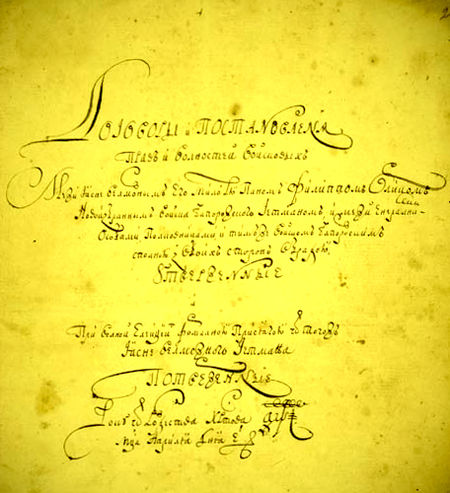 Договоры и Постановленя
Правъ и волностей войсковыхъ
Межи Ясне велможнымъ Его милостю Паномъ Филиппомъ Орликомъ
Новообраннымъ войска Запорозского Гетманомъ, и межи Енералними
Особами, Полковниками и тимже войскомъ Запорозскимъ
сполною з обоихъ сторонъ обрадою
Утверженные
При волной Елекции формалною Присягою от того жъ
Ясне велможного Гетмана
Потверженные
Року от Рождества Христова
Мца Априля